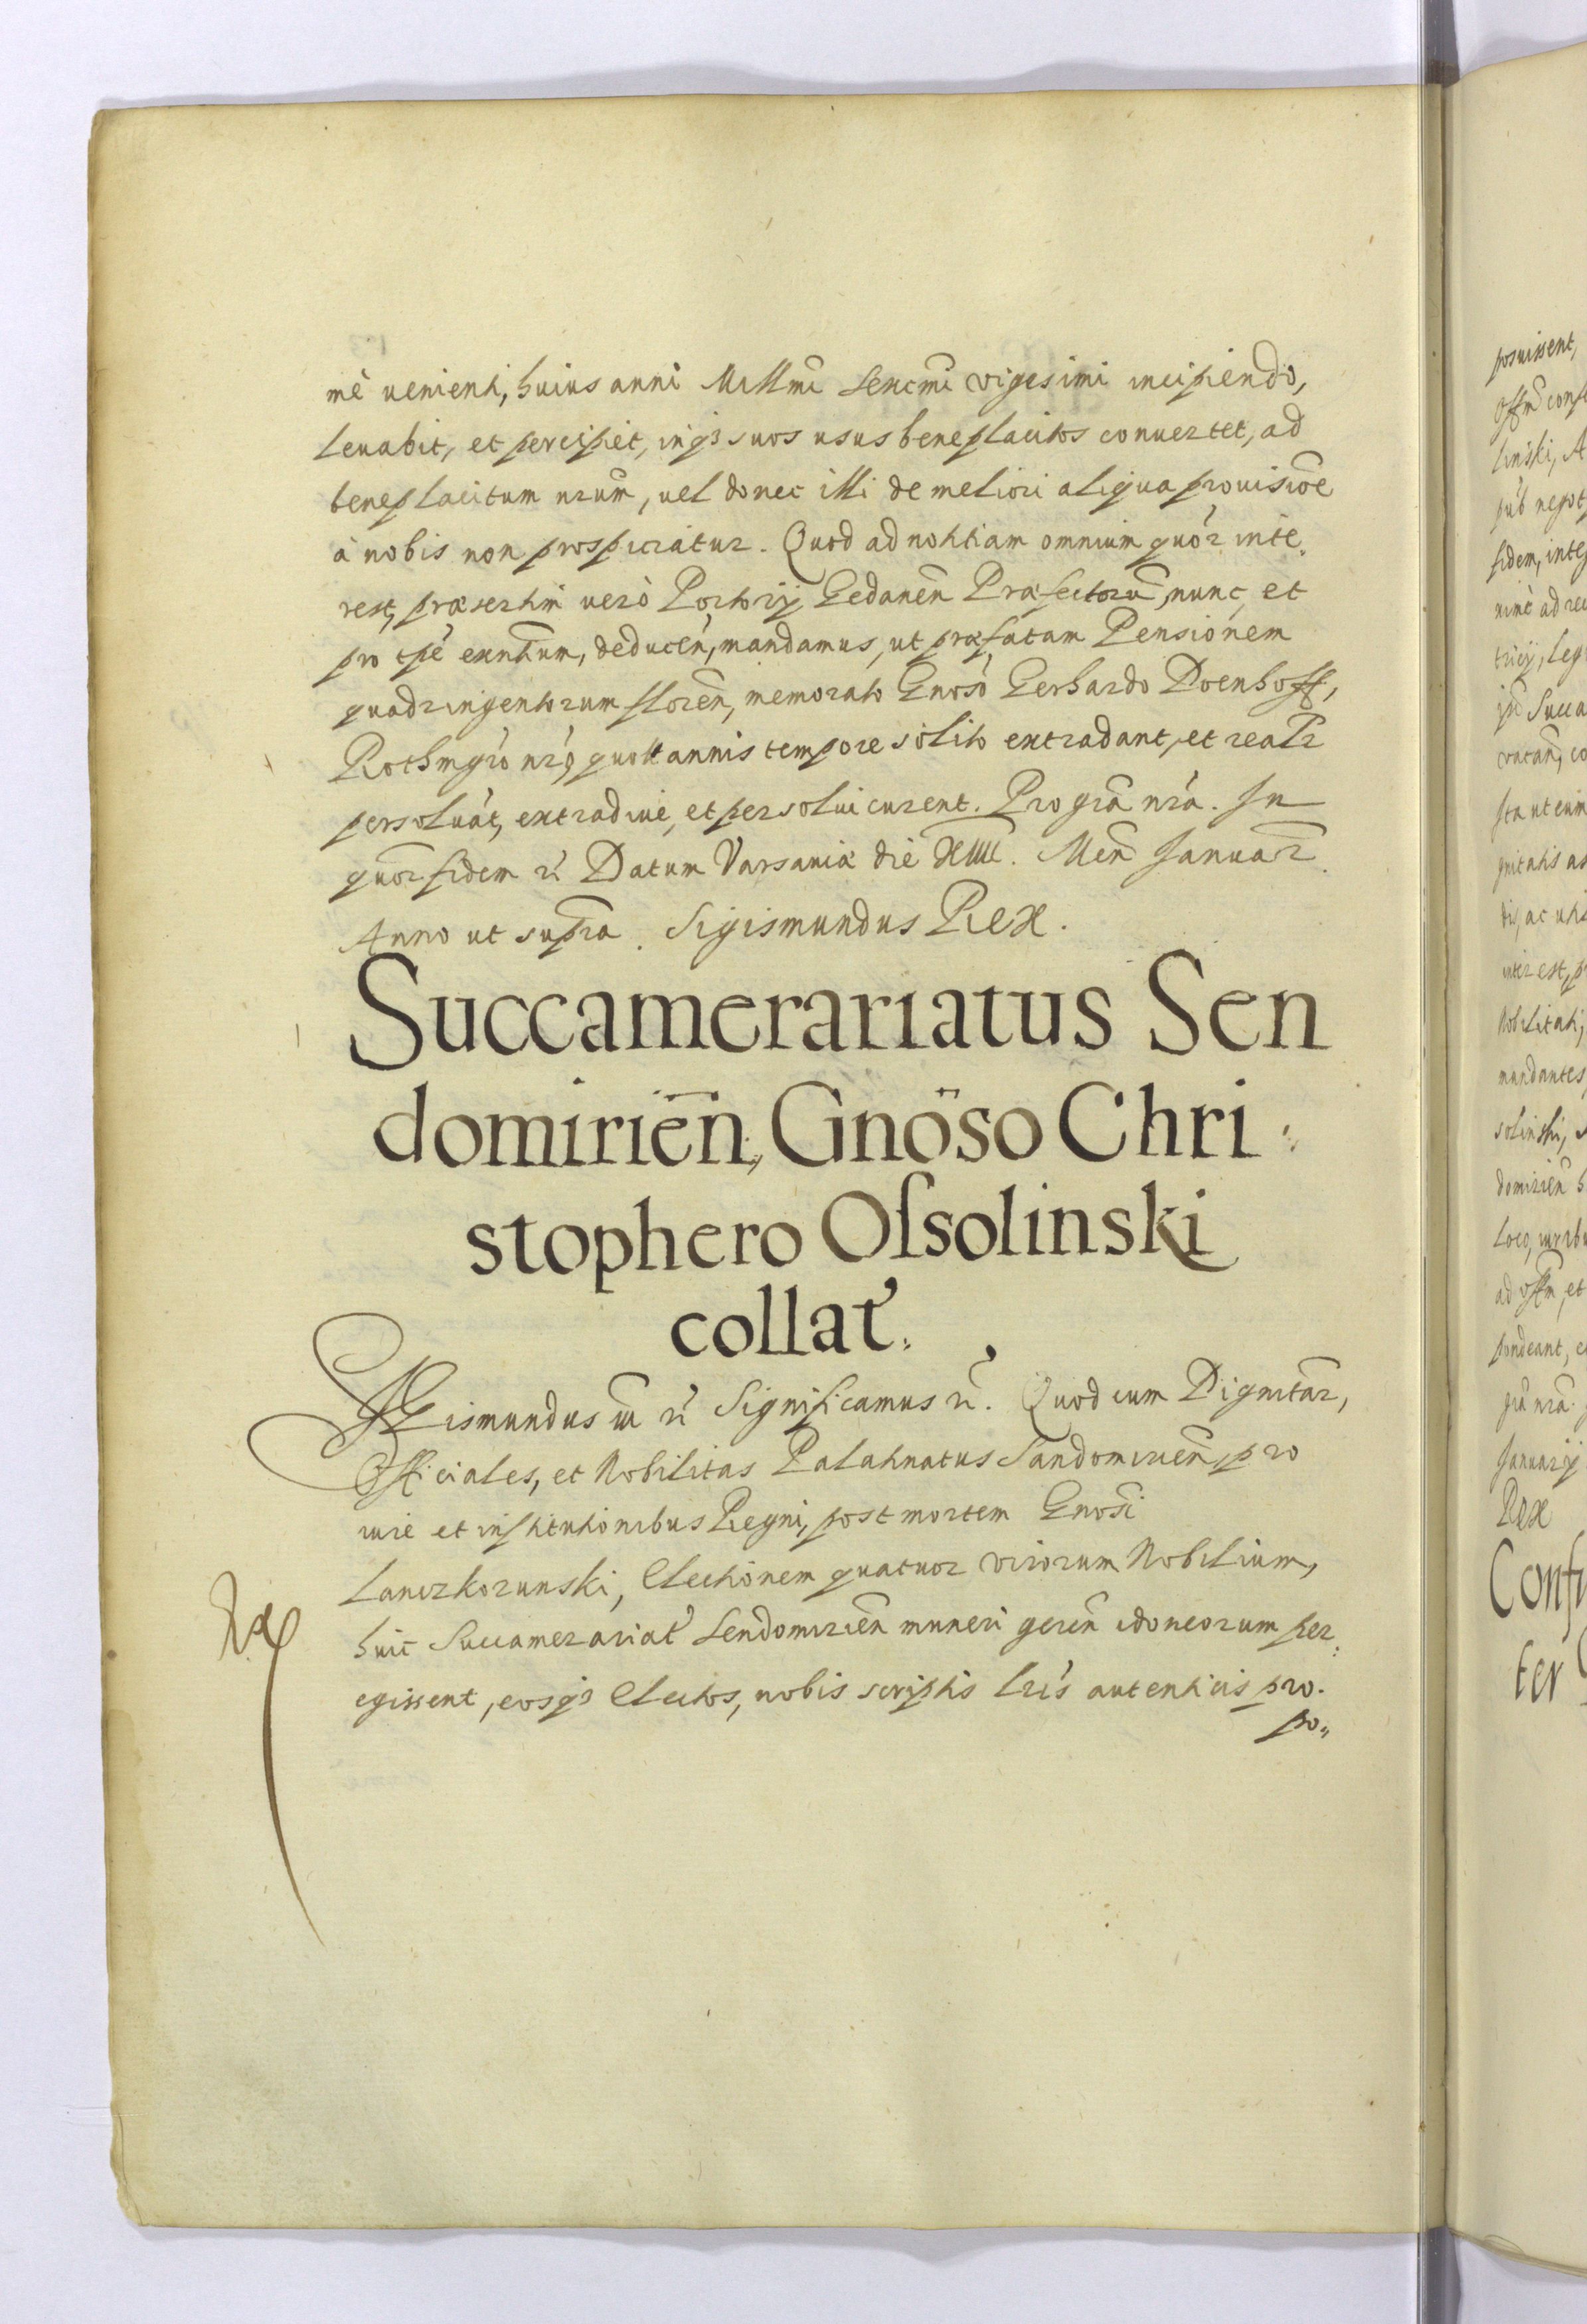 mè uenienti, huius anni Millm̄i Sexcm̄i vigesimi incipiendo,
leuabit, et percipiet, inq3 suos usus beneplacitos conuertet, ad
beneplacitum nrum̄, uel donec illi de meliori aliqua prouisio͞e
à nobis non prospiciatur. Quod ad notitiam omnium quor̄ inte,
rest, præsertim uerò Portorij Gedanen̄ Præfectoru͞, nunc, et
pro tp͞e exn̄tium, deducen̄, mandamus, ut præfatam Pensionem
quadringentorum floren̄, memorato Gnoso͞ Gerhardo Doenhoff,
Rothmgr͞o nr͞o, quottannis tempore solito extradant, et realr͞
persoluāt, extradiue, et persolui curent. Pro gra͞ nr͞a. In
quor͞ fidem r͞ Datum Varsauiæ die XIIII. Men͞ Januar͞.
Anno ut supra͞. Sigismundus Rex.
Succamerariatus Sen
domirien̄, Gnōso Chri
stophero Oſsolinski
collat'.
Sigismundus III r͞ Significamus r͞. Quod cum Dignitar͞,
Officiales, et Nobilitas Palatinatus Sandomirien͞, pro
iure et institutionibus Regni, post mortem Gnosi͞
Lanczkorunski, Electionem quatuor virorum Nobilium,
huic Succamerariat' Sendomirien͞ muneri geren͞ idoneorum per:
egissent, eosq3 Electos, nobis scriptis lr͞is autenticis pro.
po„
posuissent,
linski, A
fidem, inte
Succa
gnitatis
interest, p
Nobilitati,
mandantes,
solinski,
domirien͞
ad
pondeant,
Januarij
Rex
Conf
ter